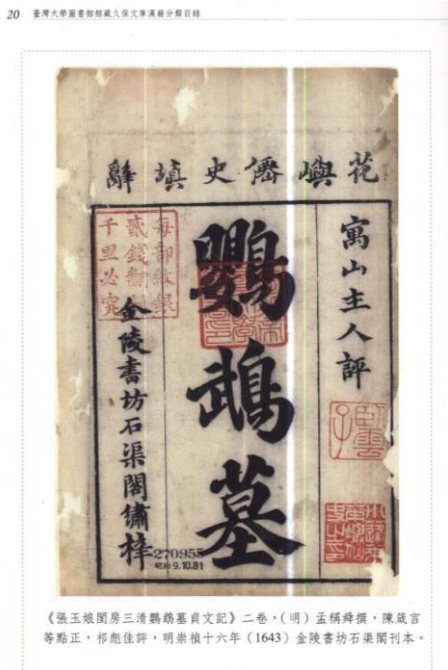 20 臺灣大學圖書館館藏久保文庫漢籍分類目錄
花嶼僊史塡辭
寓山主人評
臥雲子
鸚鵡墓
每部紋銀
貳錢翻刻
千里必究
金陵書坊石渠閣繡梓
270955
昭和 9.10.31
《張玉娘閨房三清鸚鵡墓貞文記》二卷,(明)孟稱舜撰,陳箴言
等點正,祁彪佳評,明崇禎十六年(1643)金陵書坊石渠閣刊本。